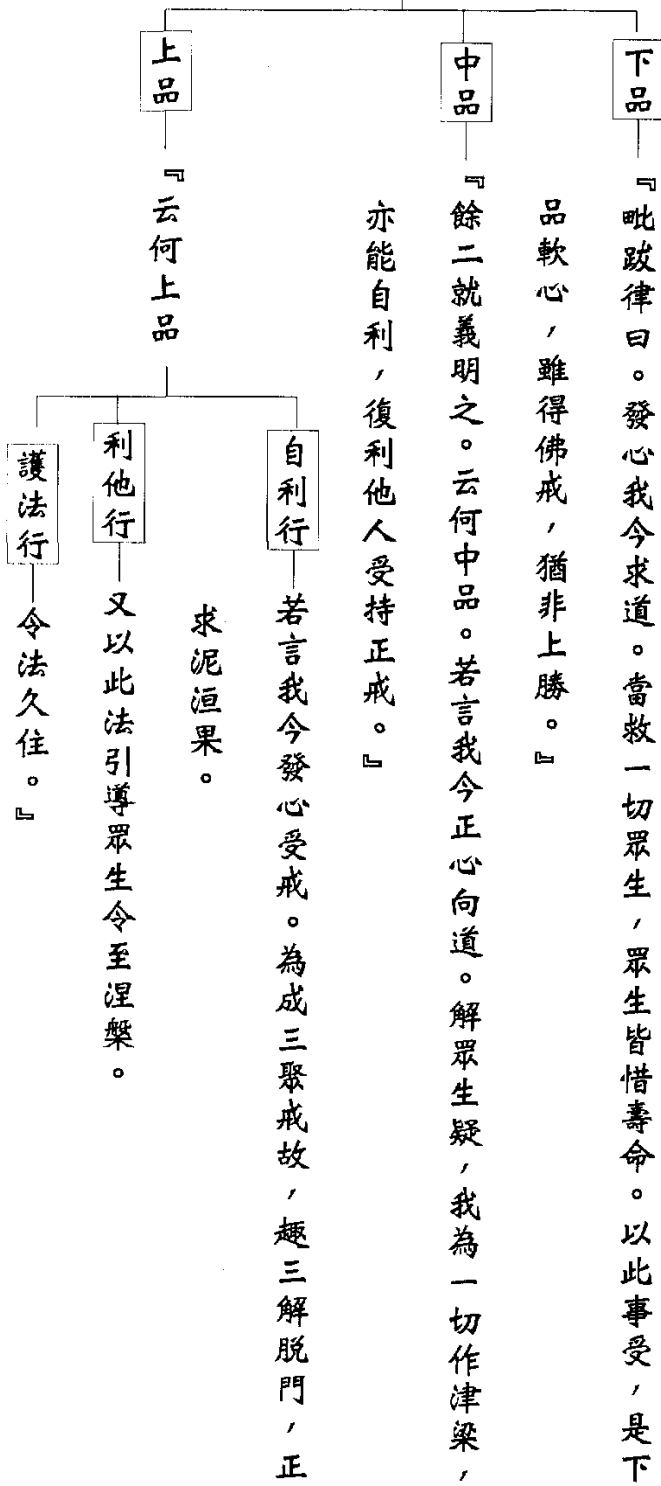 下品
『毗跋律曰。發心我今求道。當救一切眾生，眾生皆惜壽命。以此事受，是下
品軟心，雖得佛戒，猶非上勝。』
中品
『餘二就義明之。云何中品。若言我今正心向道。解眾生疑，我為一切作津梁，
亦能自利，復利他人受持正戒。』
上品
『云何上品
自利行
若言我今發心受戒。為成三聚戒故，趣三解脫門，正
求泥洹果。
利他行
又以此法引導眾生令至涅槃。
護法行
令法久住。』